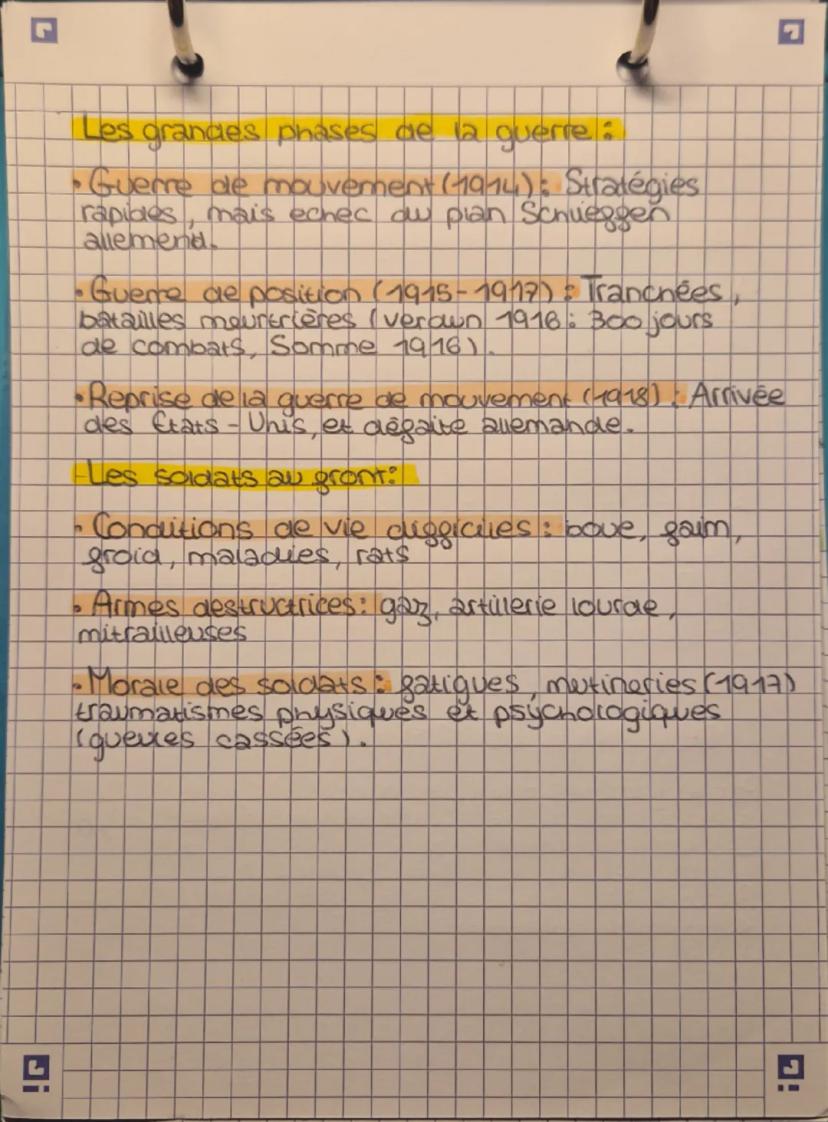 Les grandes phases de la guerre :
• Guerre de mouvement (1914) : Stratégies
rapides, mais echec du plan Schlieffen
allemend.
• Guerre de position (1915-1917) : Tranchées,
batailles meurtrières (Verdun 1916 : 300 jours
de combats, Somme 1916).
• Reprise de la guerre de mouvement (1918) : Arrivée
des États-Unis, et défaite allemande.
Les soldats au front :
• Conditions de vie difficiles : boue, faim,
froid, maladies, rats
• Armes destructrices : gaz, artillerie lourde,
mitrailleuses
• Morale des soldats : fatigues, mutineries (1917)
traumatismes physiques et psychologiques
(gueules cassées).